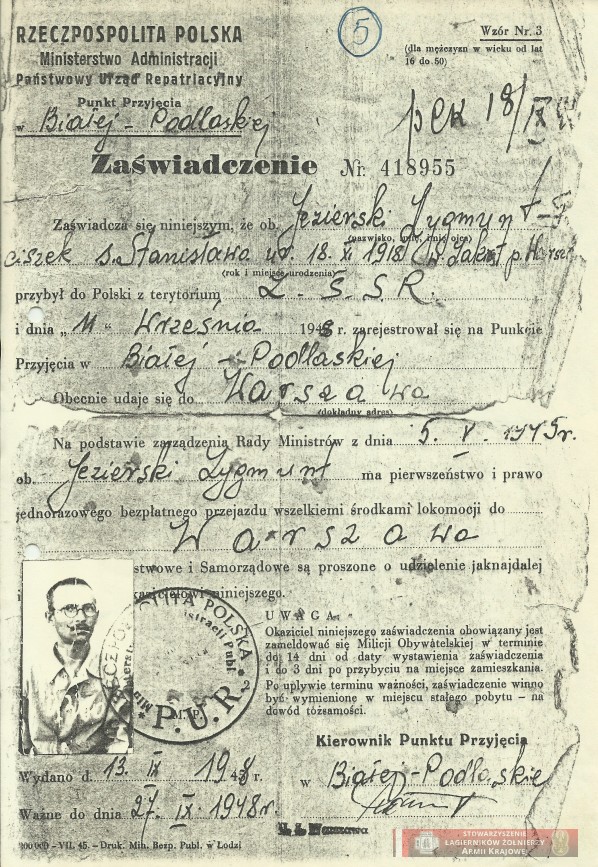 5
RZECZPOSPOLITA POLSKA
Ministerstwo Administracji
Państwowy Urząd Repatriacyjny
Punkt Przyjęcia
w Białej-Podlaskiej
Wzór Nr. 3
(dla mężczyzn w wieku od lat
16 do 50)
18/IX
Zaświadczenie Nr. 418955
Zaświadcza się niniejszym, że ob. Jezierski Zygmunt-F
(nazwisko, imię, imię ojca)
ciszek s. Stanisława ur. 18. XI 1918
(rok i miejsce urodzenia)
przybył do Polski z terytorium Z. S. S. R.
i dnia „11" Września 1948 r. zarejestrował się na Punkcie
Przyjęcia w Białej-Podlaskiej
Obecnie udaje się do Warszawa
(dokładny adres)
Na podstawie zarządzenia Rady Ministrów z dnia 5. V. 1945r.
ob. Jezierski Zygmunt ma pierwszeństwo i prawo
jednorazowego bezpłatnego przejazdu wszelkiemi środkami lokomocji do
Warszawa
stwowe i Samorządowe są proszone o udzielenie jaknajdalej
niniejszego.
UWAGA:
Okaziciel niniejszego zaświadczenia obowiązany jest
zameldować się Milicji Obywatelskiej w terminie
do 14 dni od daty wystawienia zaświadczenia
i do 3 dni po przybyciu na miejsce zamieszkania.
Po upływie terminu ważności, zaświadczenie winno
być wymienione w miejscu stałego pobytu – na
dowód tożsamości.
POLITA POLSKA
istracji Publ
P.U.R.
Kierownik Punktu Przyjęcia
Wydano d. 13. IX 1948 r.
w Białej-Podlaskiej
Ważne do dnia 27. IX 1948r.
Warszawa
200 000 – VII. 45. – Druk. Min. Bezp. Publ. w Łodzi
STOWARZYSZENIE
ŁAGIERNIKÓW ŻOŁNIERZY
ARMII KRAJOWEJ